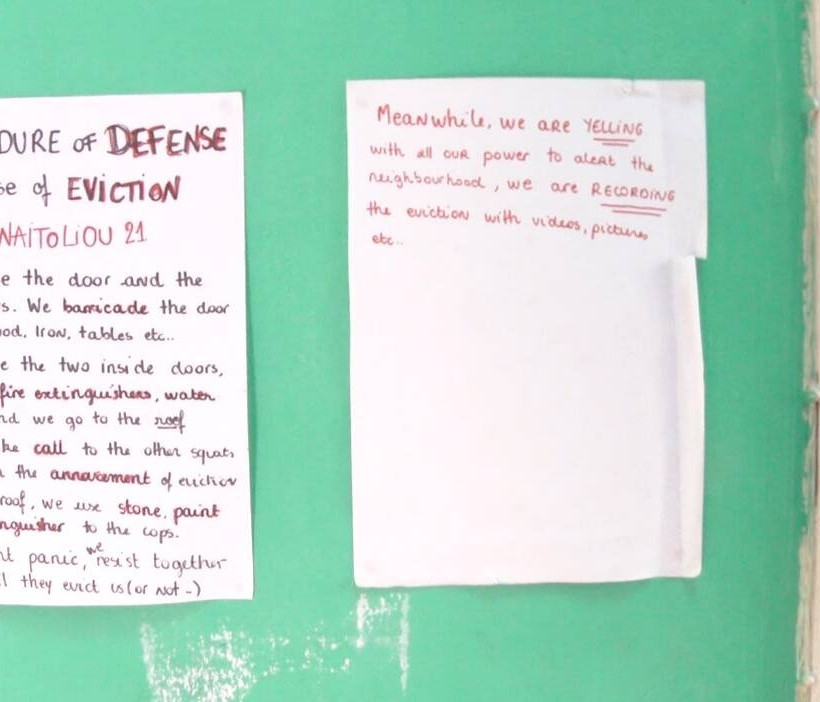 DURE OF DEFENSE
se of EVICTION
NAITOLIOU 21
e the door and the
s. We barricade the door
ood, Iron, tables etc..
e the two inside doors,
fire extinguishers, water
nd we go to the roof
ke call to the other squats
the annoucement of eviction
roof, we use stone, paint
nguisher to the cops.
nt panic, we resist together
l they evict us (or not -)
Meanwhile, we are YELLING
with all our power to alert the
neighbourhood, we are RECORDING
the eviction with videos, pictures
etc..